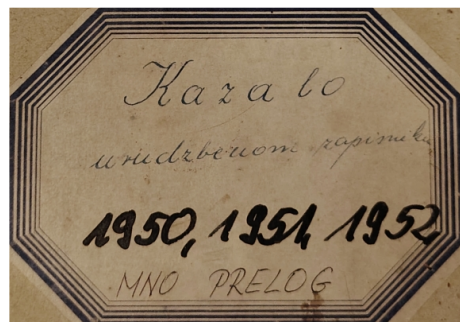 Kazalo
urudzbenom zapisniku
1950, 1951, 1952
MNO PRELOG